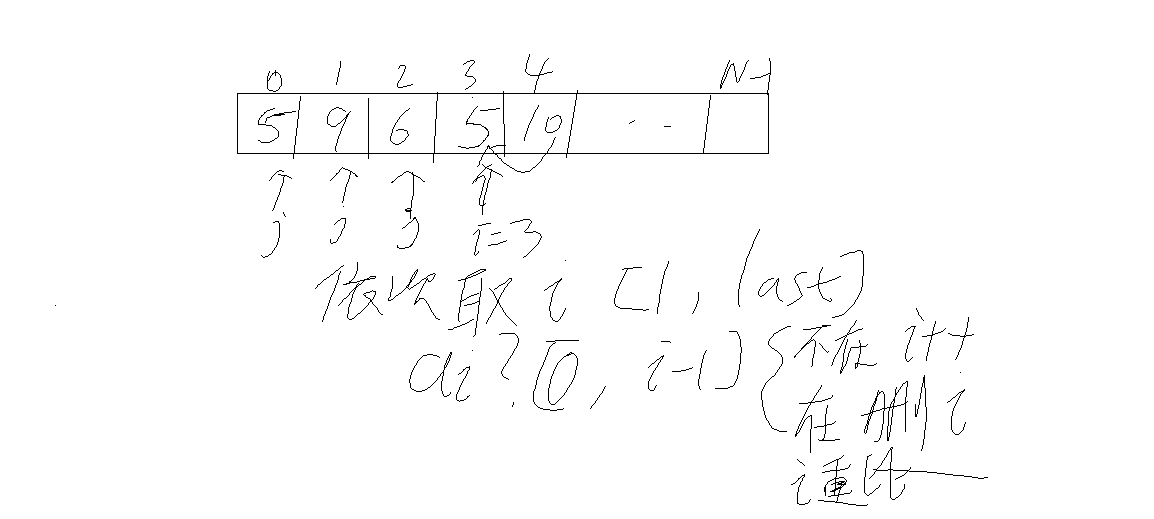 0 1 2 3 4 N-1
5 9 6 5 10 ..
j j j i=3
依次取 i [1, last]
ai? [0, i-1] { 不在 i++
在 删 i
i 重比